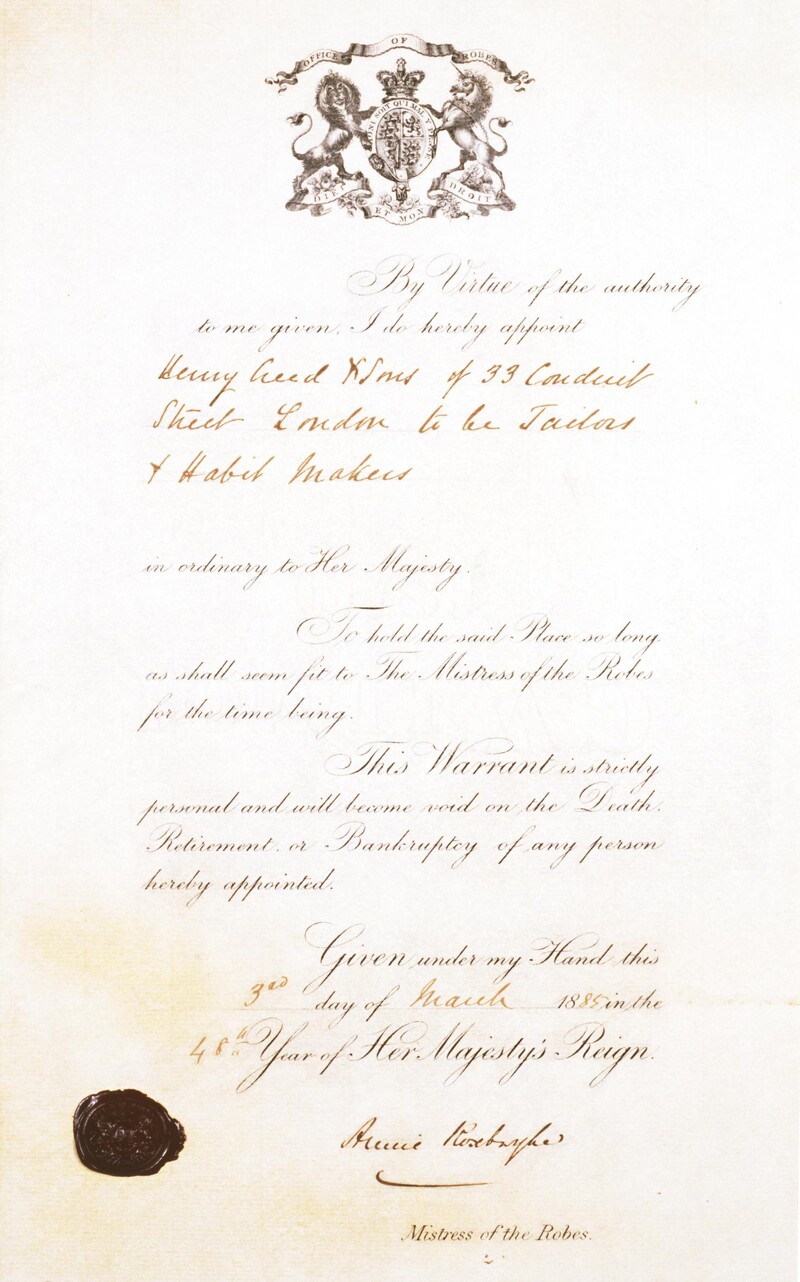 OFFICE OF ROBES
HONI SOIT QUI MAL Y PENSE
DIEU ET MON DROIT
By Virtue of the authority
to me given, I do hereby appoint
Henry Creed & Sons of 33 Conduit
Street London to be Tailors
& Habit Makers
in ordinary to Her Majesty.
To hold the said Place so long
as shall seem fit to The Mistress of the Robes
for the time being.
This Warrant is strictly
personal and will become void on the Death,
Retirement, or Bankruptcy of any person
hereby appointed.
Given under my Hand this
3rd day of March 1885 in the
48th Year of Her Majesty's Reign.
Annie Roxburghe
Mistress of the Robes.